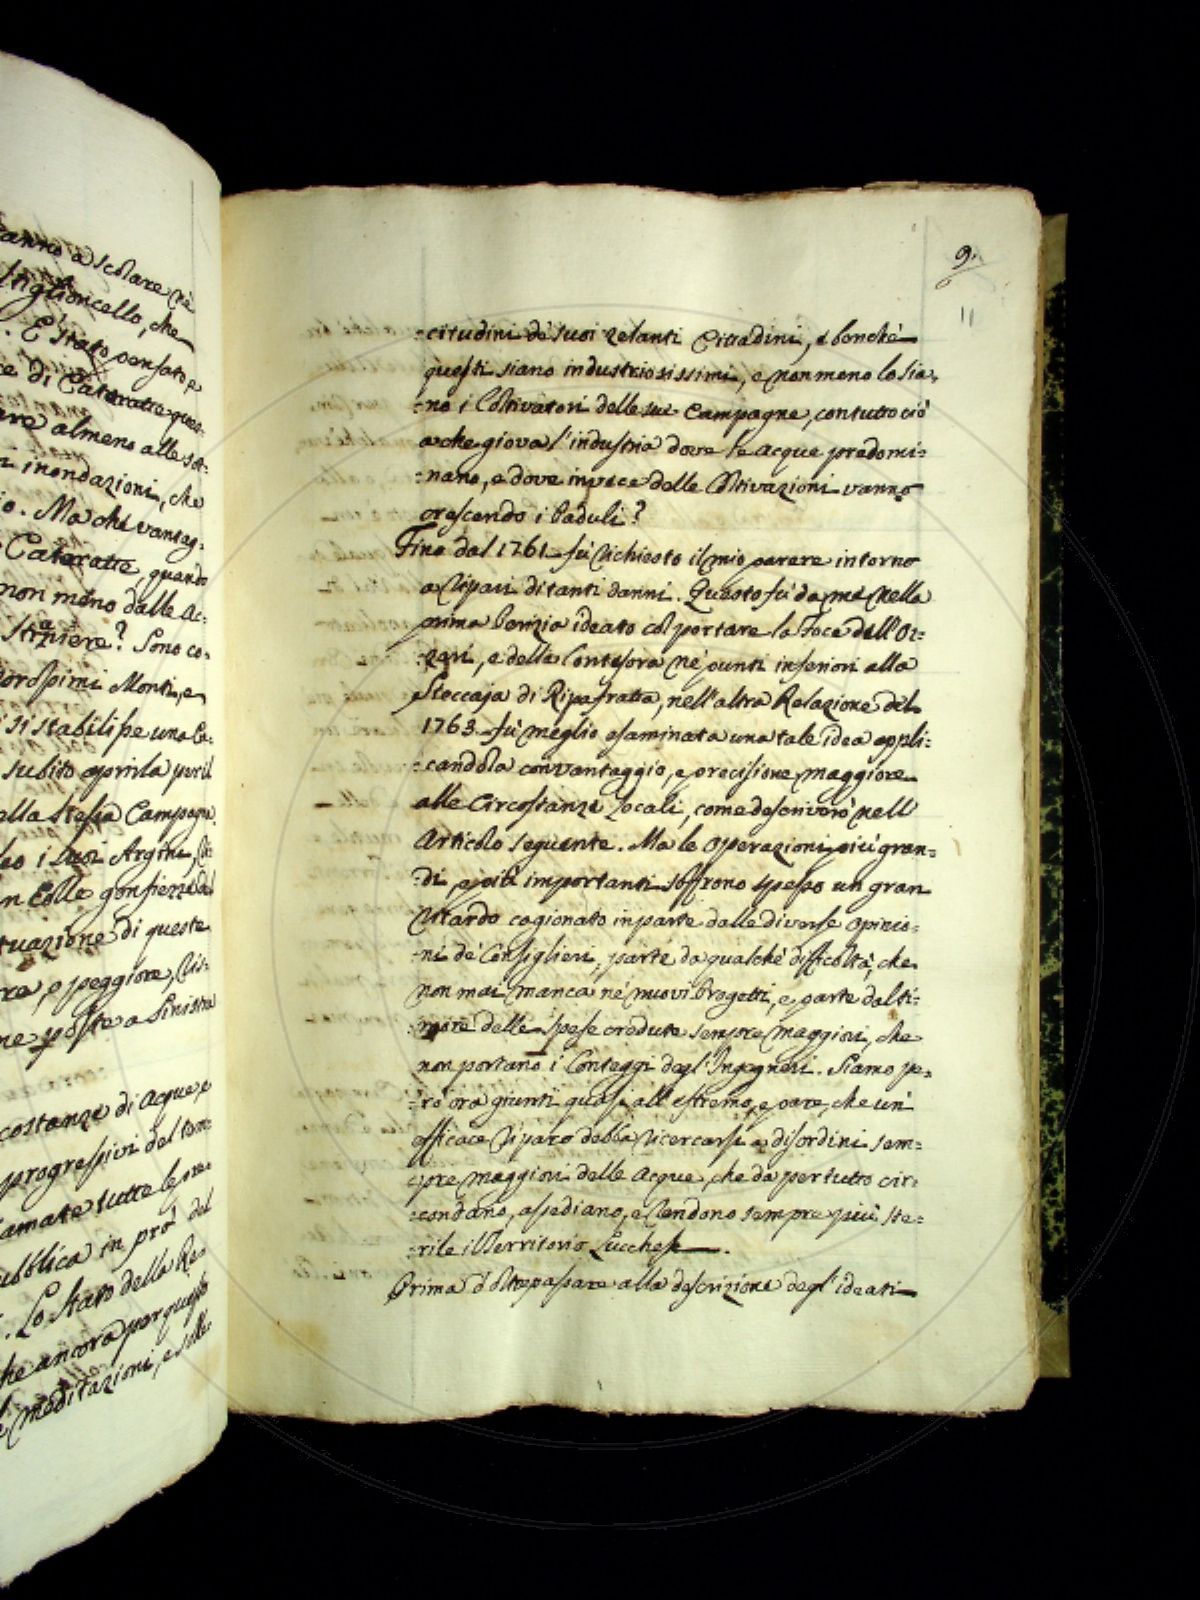 anno a scolare nè
stiglioncello, che
. E' stato pensato, e
ce di Cateratte ques-
are almeno alle sot-
i inondazioni, che
io. Ma che vantag-
Cateratte, quando
non meno dalle ac-
straniere? Sono co-
Monti, e
si stabilisse una Ca-
subito aprirla per il
alla stessa Campagna.
i suoi Argini,
in colle gonfiezze del
tuazione di queste
re, e peggiore,
ne poste a sinistra
costanze di acque, e
progressivi del tem-
amate tutte le pre-
ubblica in prò del
. Lo Stato della Re-
che ancora per questo
meditazioni, e solle-
9.
11
:citudini de' suoi zelanti Cittadini, e benchè
questi siano industriosissimi, e non meno lo sia-
:no i Coltivatori delle sue Campagne, con tutto ciò
a che giova l'industria dove le acque predomi:
:nano, e dove in vece delle Coltivazioni vanno
crescendo i Paduli?
Fino dal 1761 fù richiesto il mio parere intorno
a ripari di tanti danni. Questo fù da me nella
prima Perizia ideato col portare la Foce dell'Oz:
:zeri, e della Contesora nè punti inferiori alla
Steccaja di Ripafratta, nell'altra Relazione del
1763 fù meglio esaminata una tale idea appli:
:candola con vantaggio, e precisione maggiore
alle Circostanze locali, come descriverò nell'
Articolo seguente. Ma le operazioni più gran:
:di, e più importanti soffrono spesso un gran
ritardo cagionato in parte dalle diverse opinio:
:ni de' Consiglieri, parte da qualche difficoltà, che
non mai manca nè nuovi Progetti, e parte dal ti:
:more delle spese credute sempre maggiori, che
non portano i Conteggi degl'Ingegneri. Siamo pe:
:rò ora giunti quasi all'estremo, e pare, che un'
efficace riparo debba ricercarsi a disordini sem:
:pre maggiori delle acque, che da per tutto cir:
:condano, assediano, e rendono sempre più ste:
:rile il Territorio Lucchese.
Prima d'oltrepassare alla descrizione degl'ideati